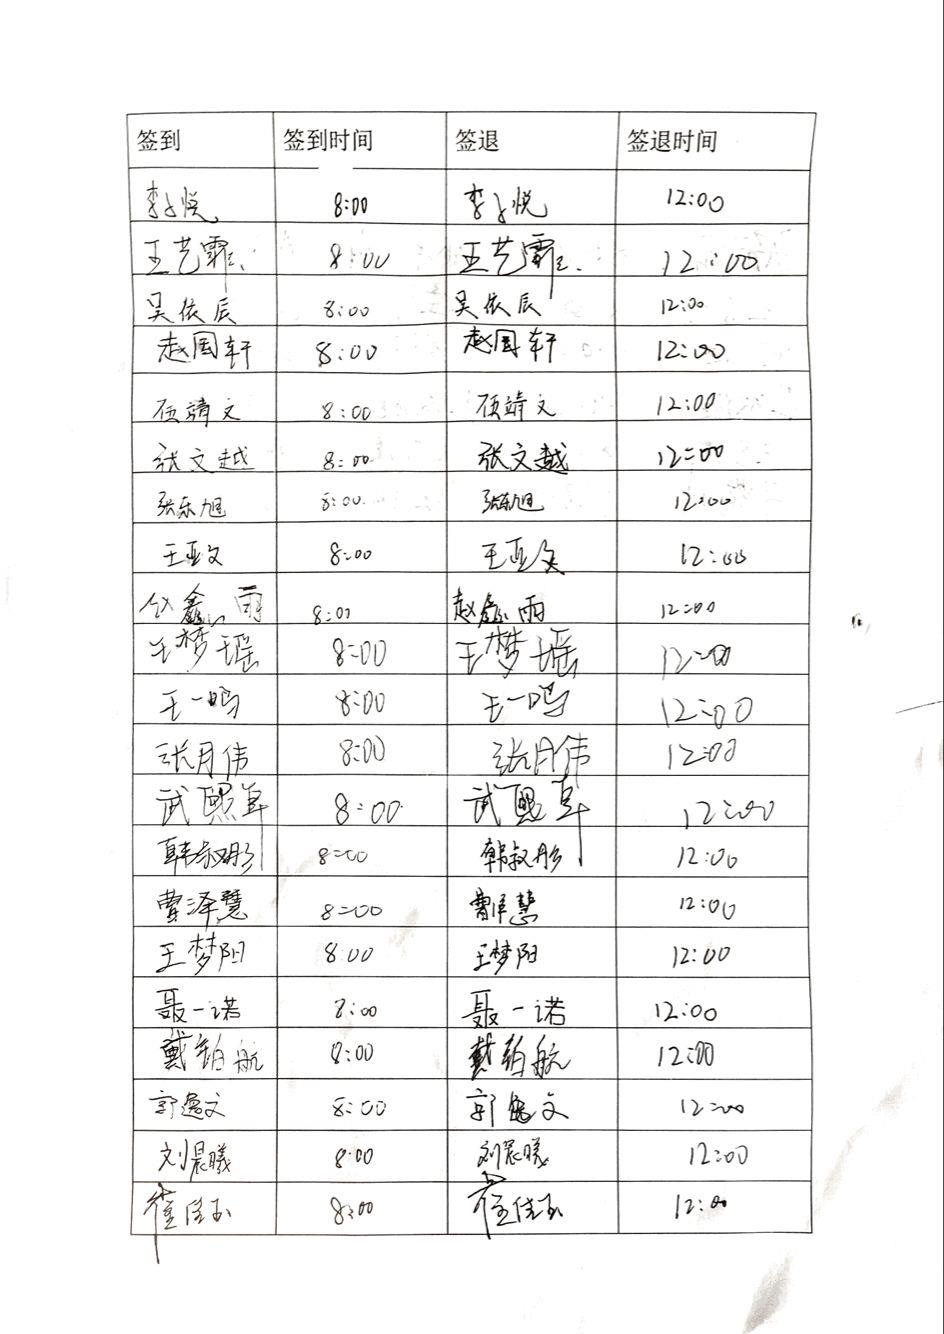 签到 签到时间 签退 签退时间
李子悦 8:00 李子悦 12:00
王艺霏 8:00 王艺霏 12:00
吴依辰 8:00 吴依辰 12:00
赵国轩 8:00 赵国轩 12:00
顾靖文 8:00 顾靖文 12:00
张文越 8:00 张文越 12:00
张乐旭 8:00 张乐旭 12:00
王亚文 8:00 王亚文 12:00
赵鑫雨 8:00 赵鑫雨 12:00
王梦瑶 8:00 王梦瑶 12:00
王一鸣 8:00 王一鸣 12:00
张月伟 8:00 张月伟 12:00
武熙卓 8:00 武熙卓 12:00
韩叔彤 8:00 韩叔彤 12:00
曹泽慧 8:00 曹泽慧 12:00
王梦阳 8:00 王梦阳 12:00
聂一诺 8:00 聂一诺 12:00
戴铂航 8:00 戴铂航 12:00
郭逸文 8:00 郭逸文 12:00
刘晨曦 8:00 刘晨曦 12:00
崔佳玉 8:00 崔佳玉 12:00